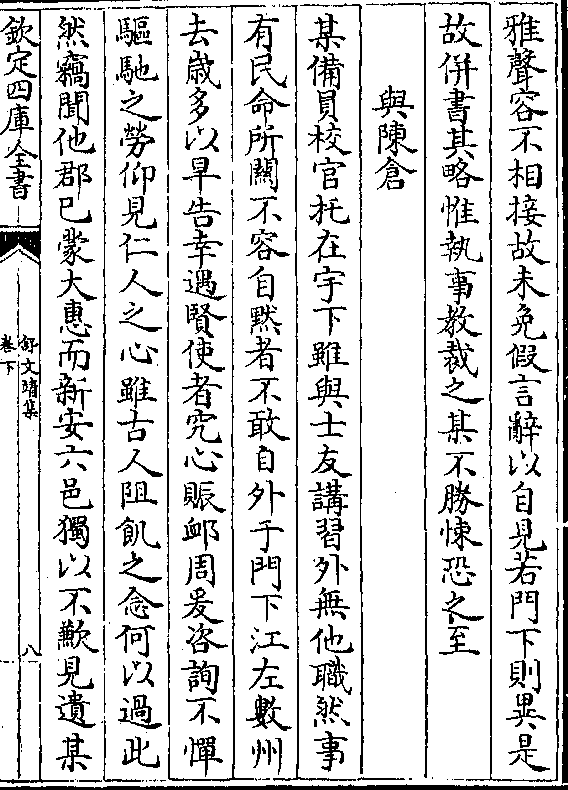 雅聲容不相接故未免假言辭以自見若門下則異是
故併書其略惟執事教裁之某不勝悚恐之至
與陳倉
某備員校官托在宇下雖與士友講習外無他職然事
有民命所關不容自默者不敢自外于門下江左數州
去嵗多以旱告幸遇賢使者究心賑邺周爰咨詢不憚
驅馳之勞仰見仁人之心雖古人阻飢之念何以過此
然竊聞他郡已蒙大惠而新安六邑獨以不歉見遺某
欽定四庫全書
舒文靖集
卷下
八